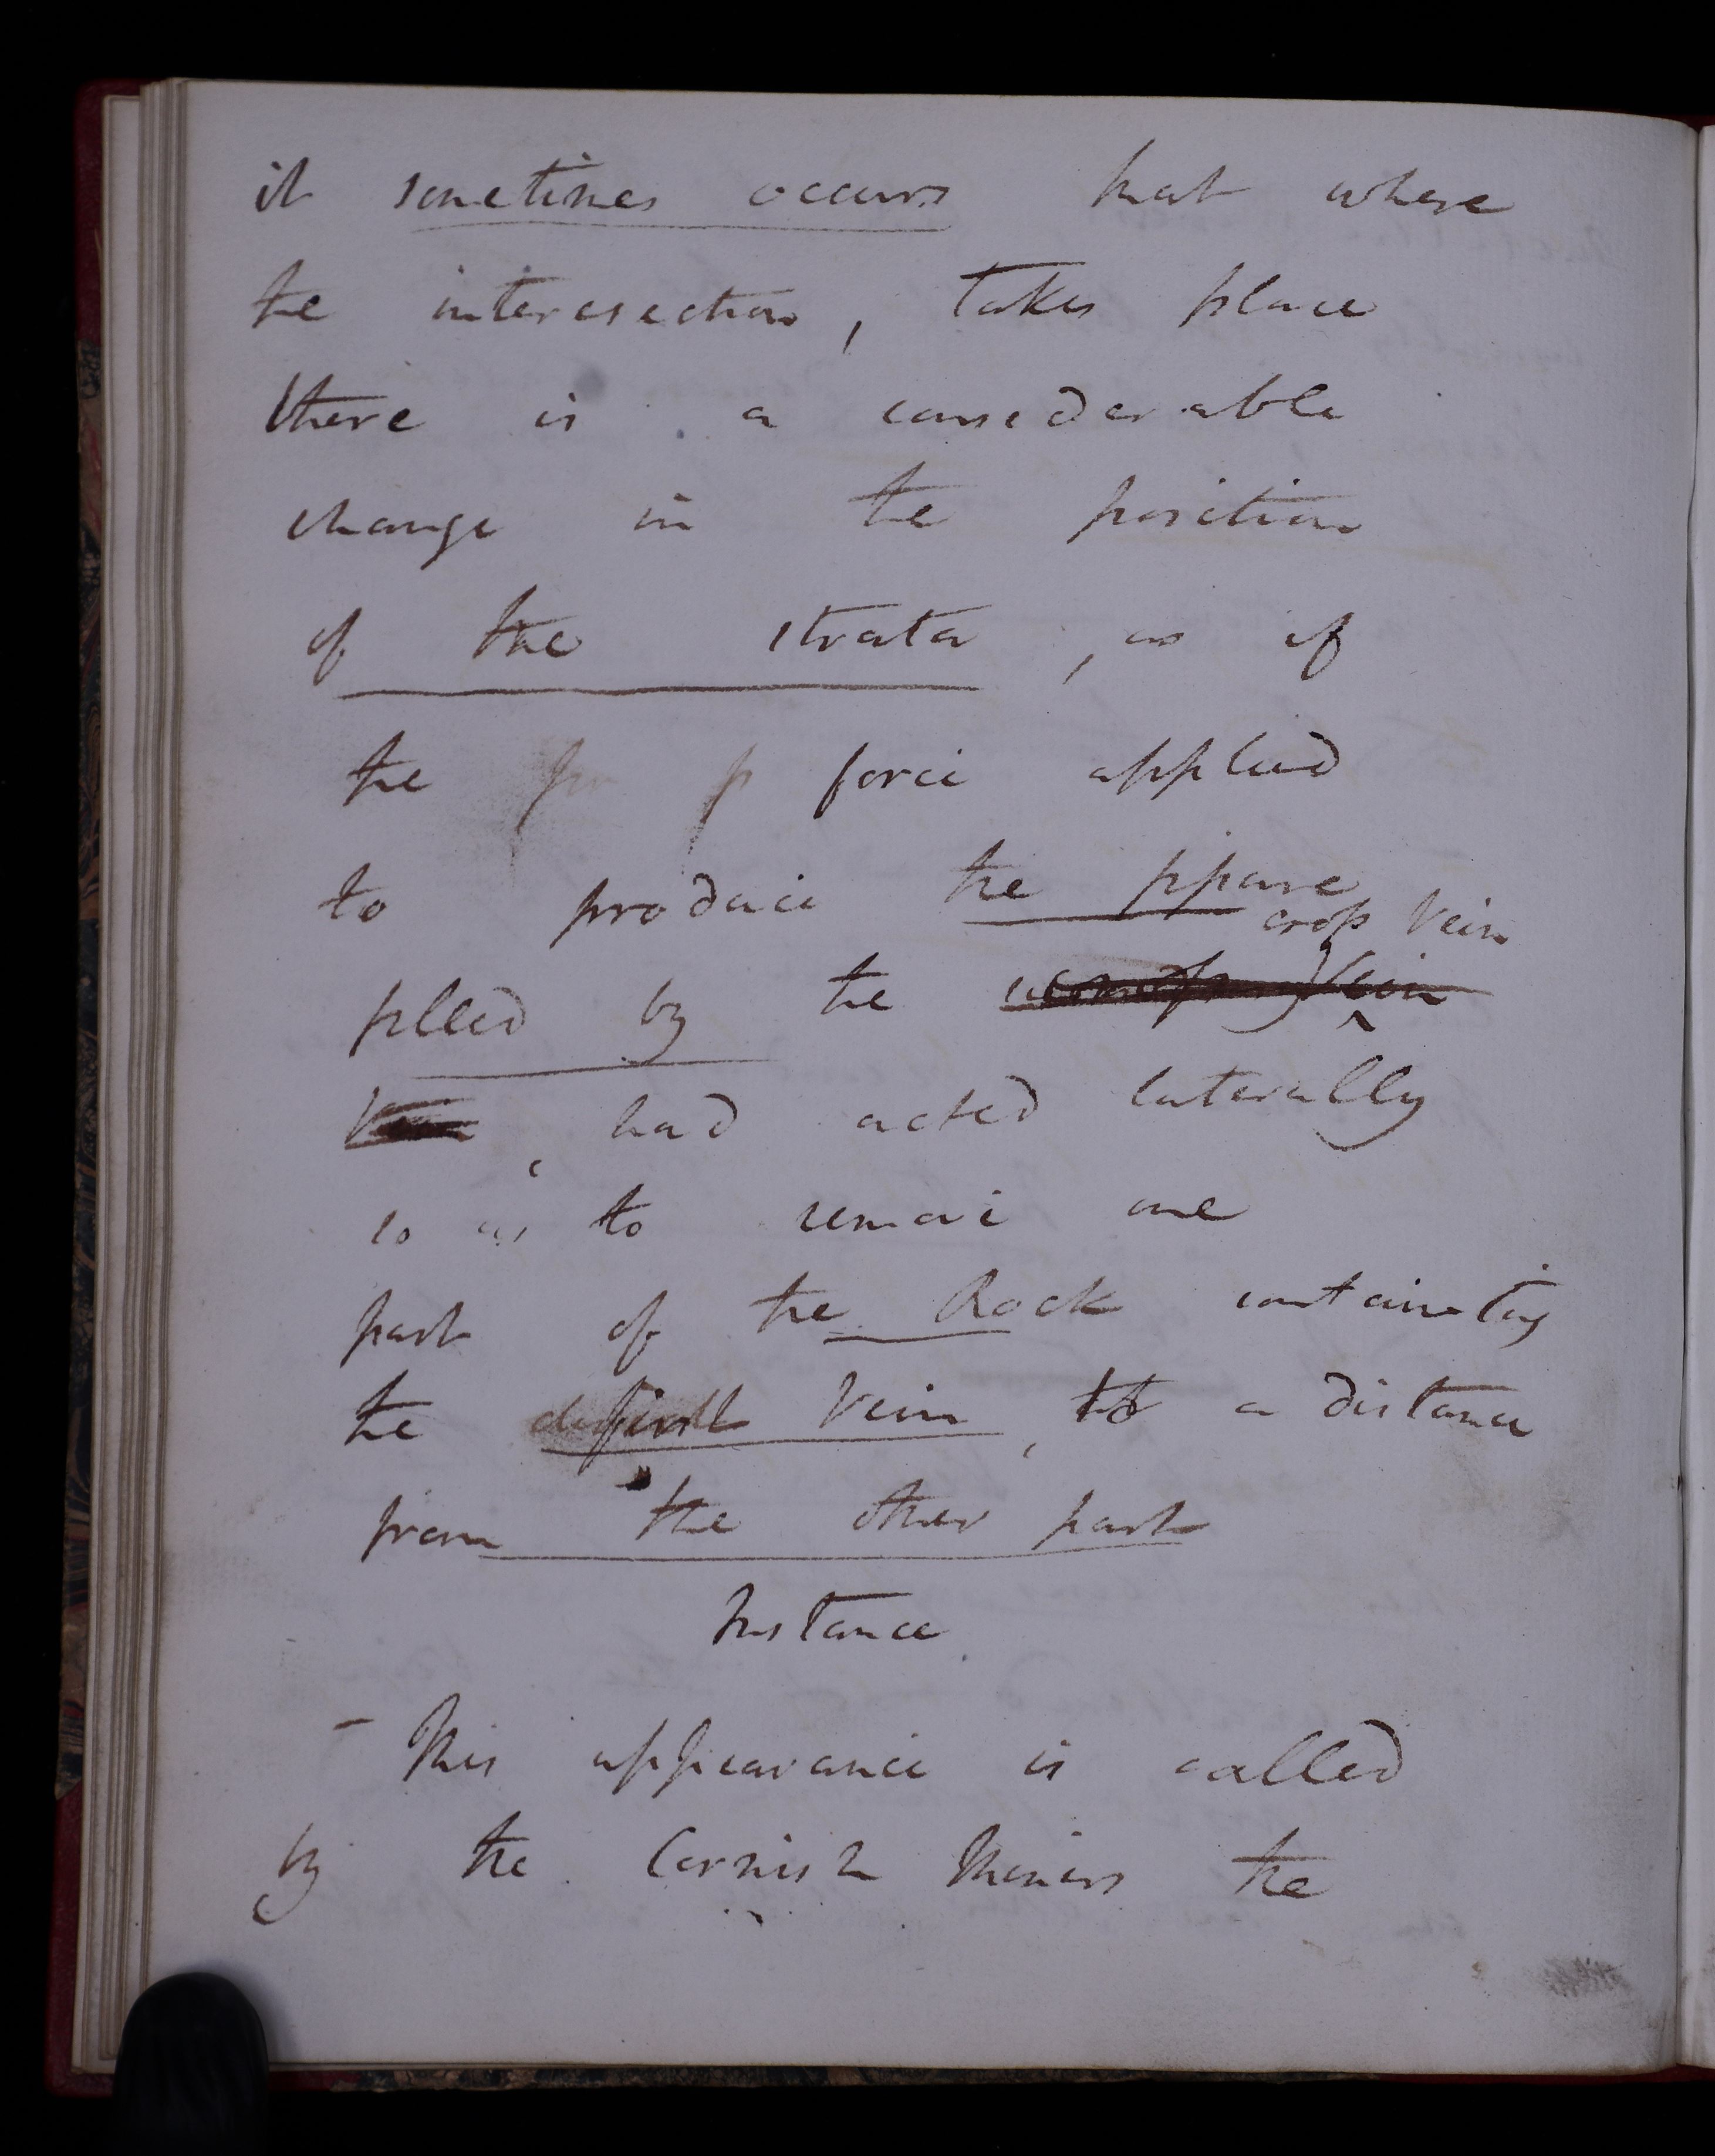 it sometimes occurs that where
the interesection, takes place
there is a considerable
change in the position
of the strata, as if
the force applied
to produce the fissure
cross Vein
filled by the Vein
Vein, had acted laterally
so as to remove one
part of the Rock containing
the first Vein, to a distance
from the other part
Instance
- This appearance is called
by the Cornish Miners the